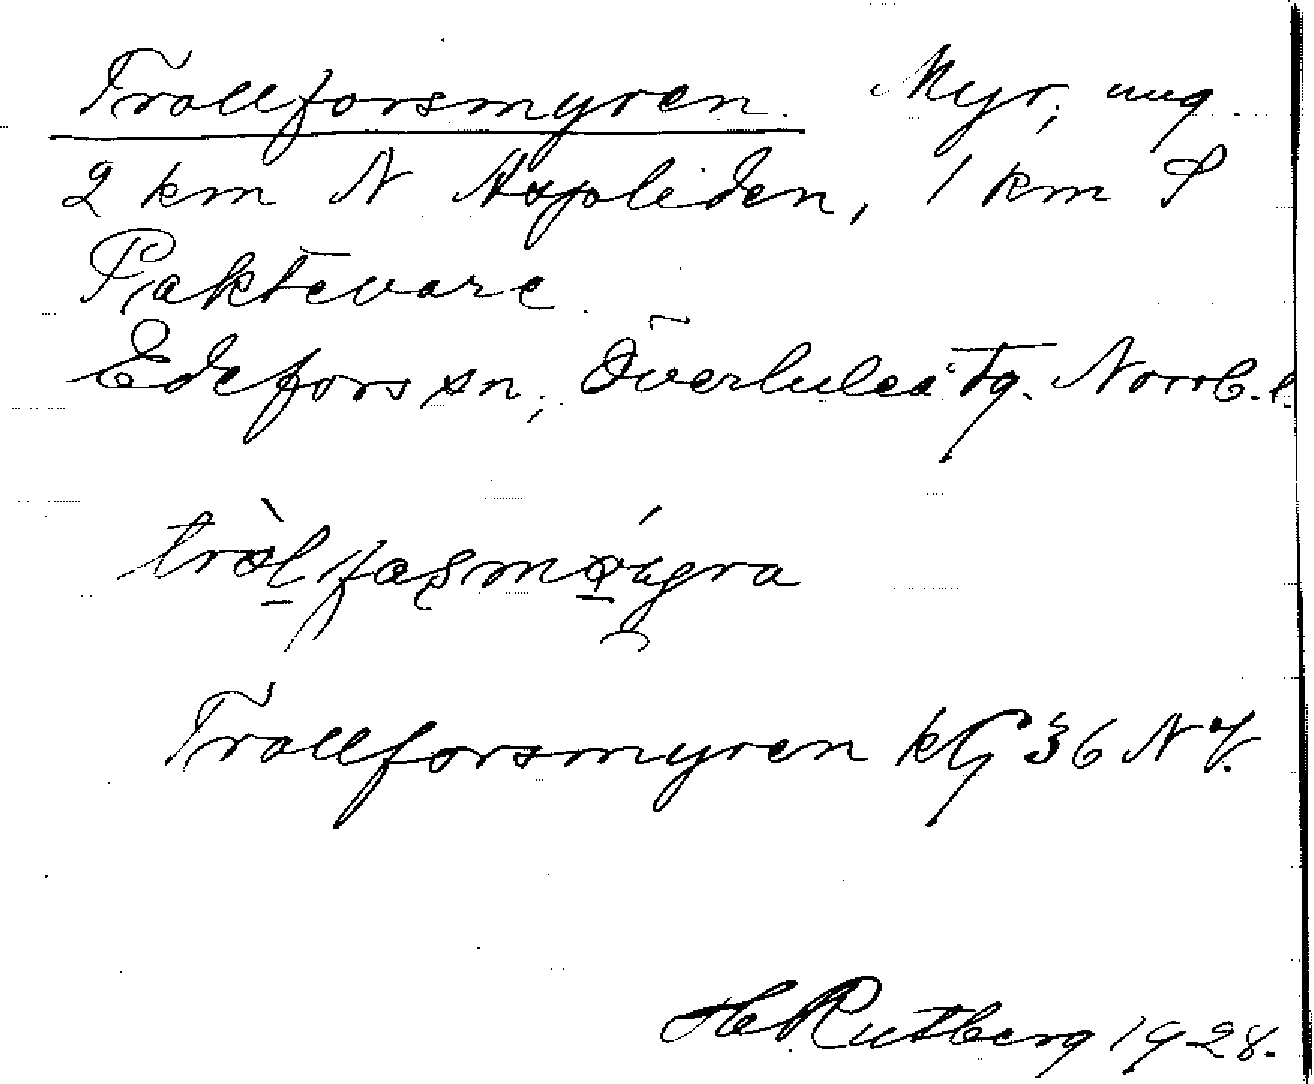 Trollforsmyren. Myr, ung.
2 km N Aspliden, 1 km S
Paktevare.
Edefors sn, Överluleå tg. Norrb. l.
Trollforsmyren kG 36 NV.
H Rutberg 1928.